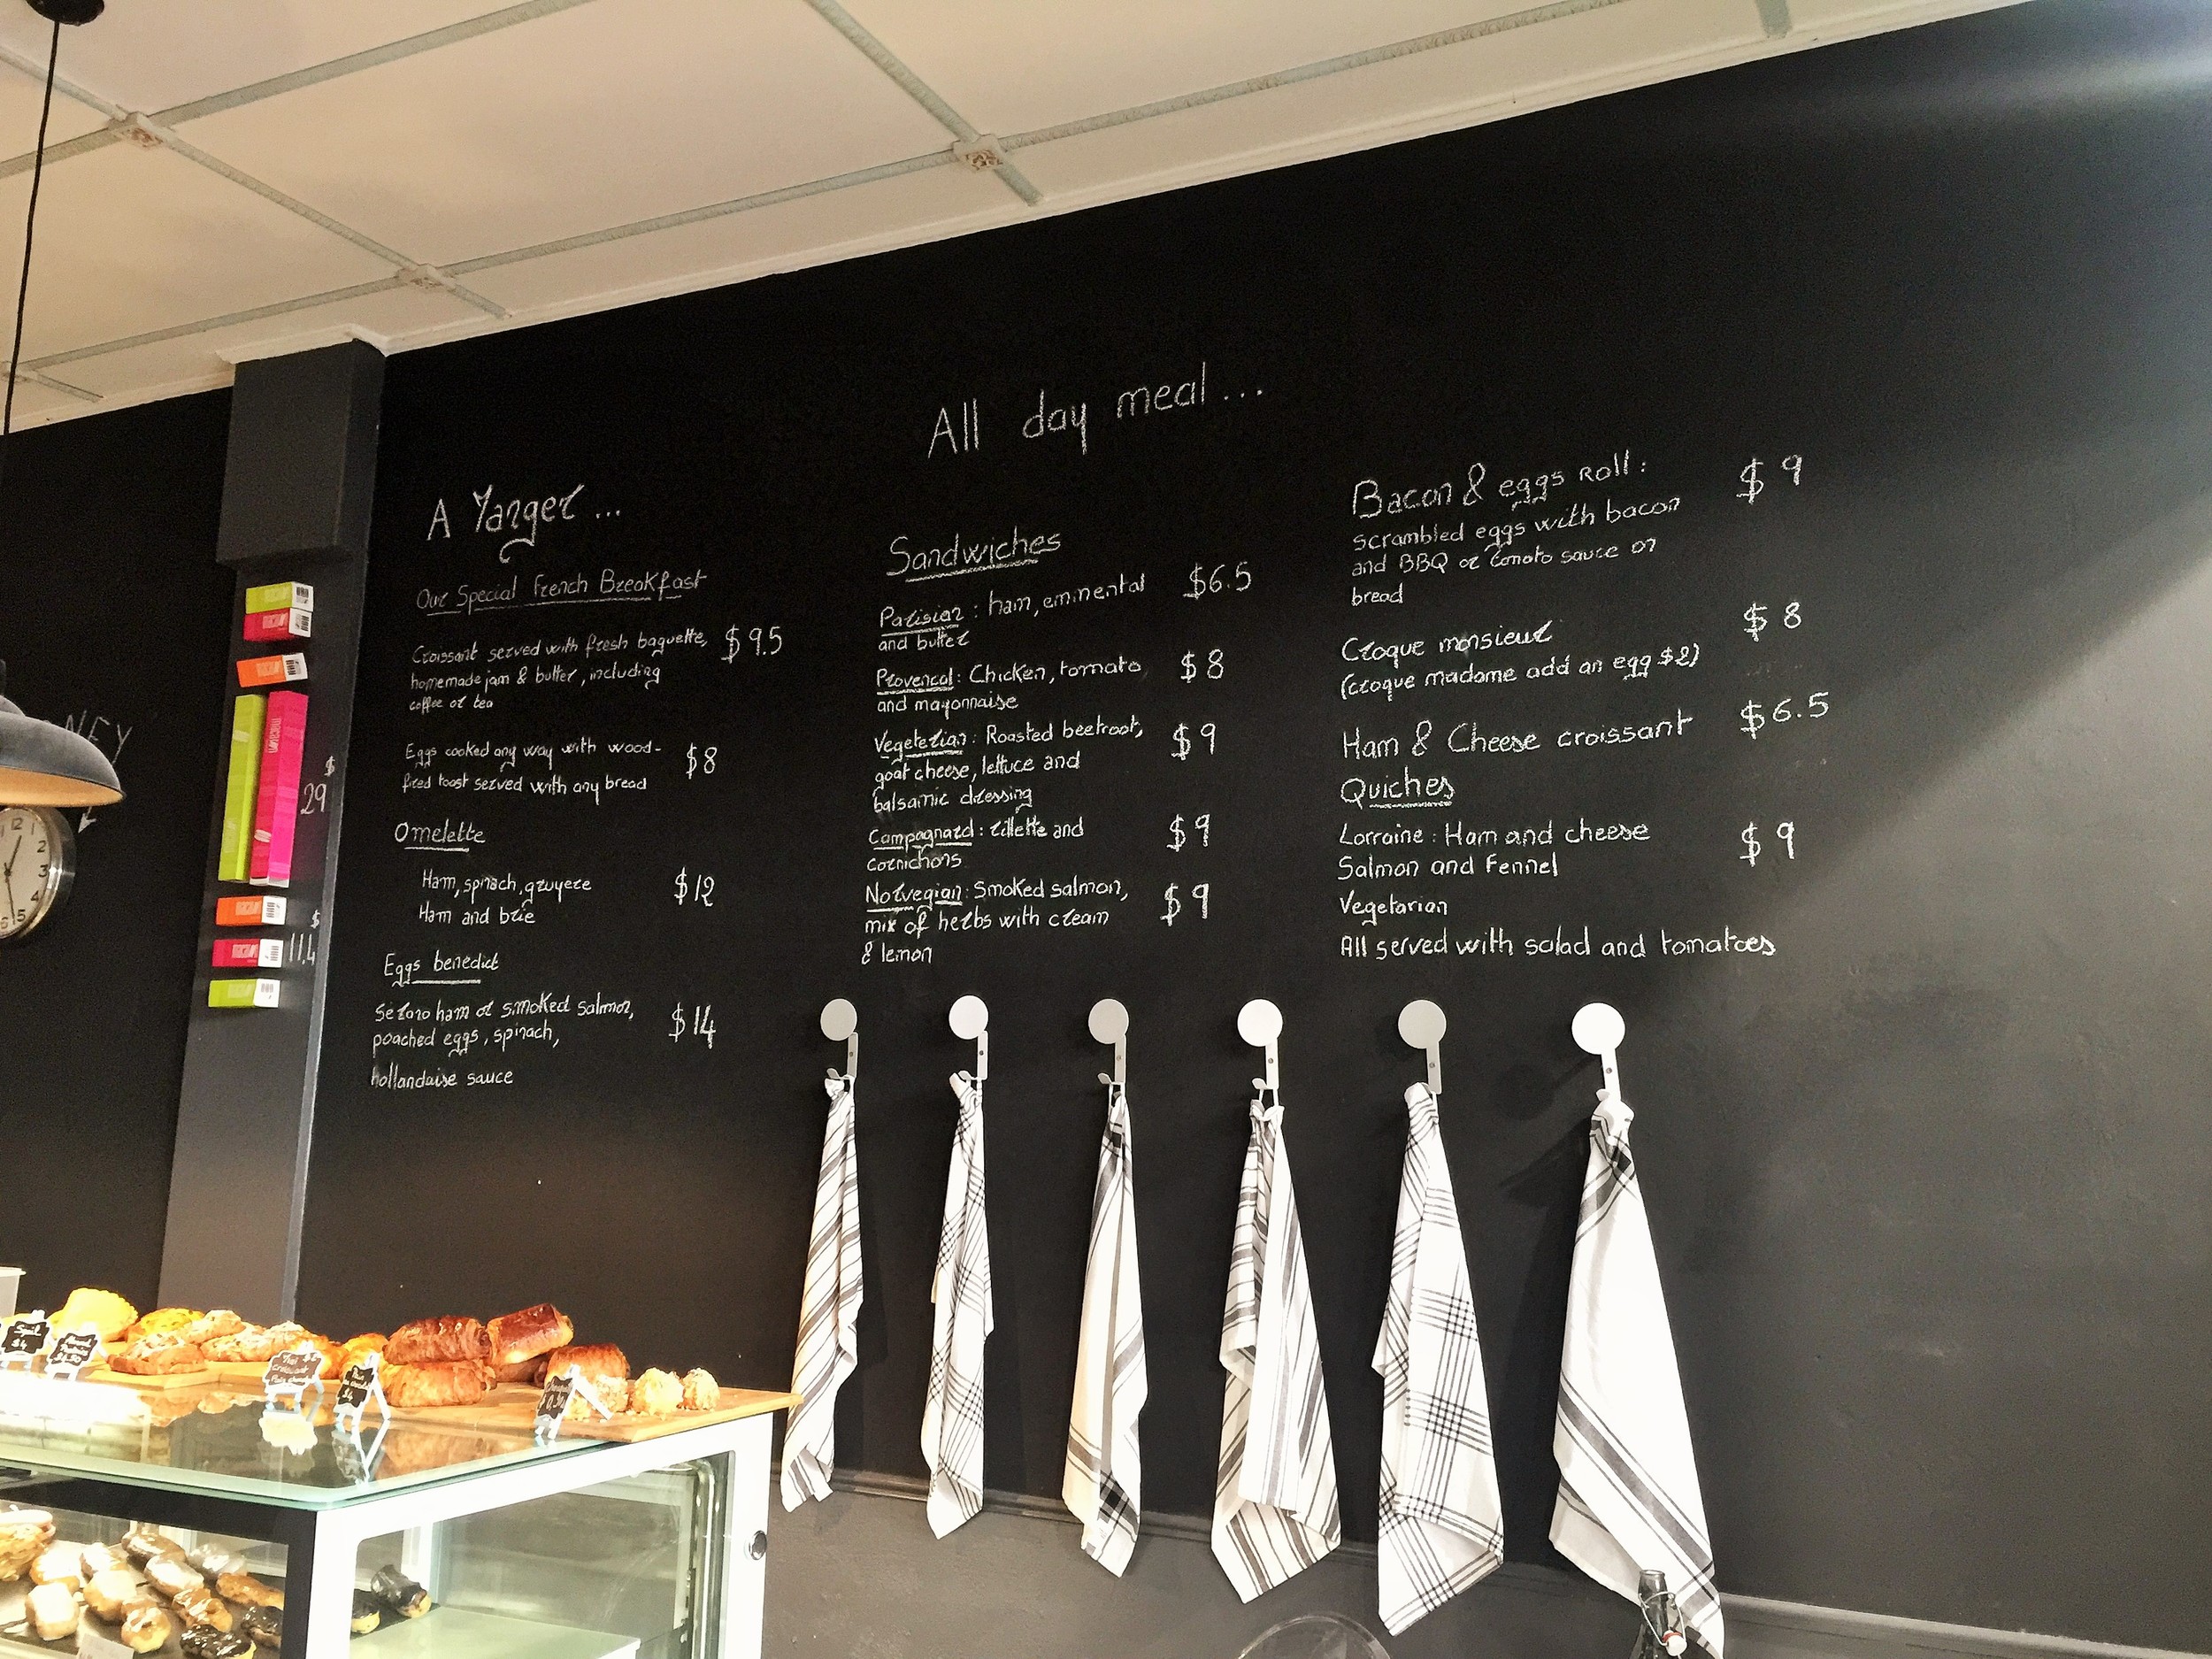 All day meal...
A Manger...
Our Special French Breakfast
Croissant served with fresh baguette, $9.5
homemade jam & butter, including
coffee or tea
Eggs cooked any way with wood-
fired toast served with any bread $8
Omelette
Ham, spinach, gruyere $12
Ham and brie
Eggs benedict
Serano ham or smoked salmon,
poached eggs, spinach, $14
hollandaise sauce
Sandwiches
Parisian: ham, emmental $6.5
and butter
Provencal: Chicken, tomato $8
and mayonnaise
Vegeterian: Roasted beetroot, $9
goat cheese, lettuce and
balsamic dressing
Campagnard: rillette and $9
cornichons
Norvegian: Smoked salmon, $9
mix of herbs with cream
& lemon
Bacon & eggs Roll: $9
scrambled eggs with bacon
and BBQ or tomato sauce on
bread
Croque monsieur $8
(croque madame add an egg $2)
Ham & Cheese croissant $6.5
Quiches
Lorraine: Ham and cheese $9
Salmon and Fennel
Vegetarian
All served with salad and tomatoes
NEY
$
29
$
11.4
12
1
2
3
4
5
6